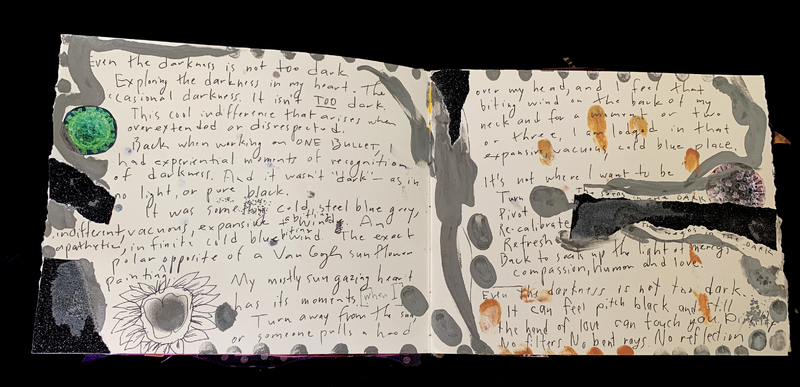 Even the darkness is not too dark
Exploring the darkness in my heart. The
occasional darkness. It isn't TOO dark.
This cool indifference that arises when
overextended or disrespected.
Back when working on ONE BULLET, I
had experiential moments of recognition
of darkness. And it wasn't "dark" – as in
no light, or pure black.
It was something cold, steel blue grey,
indifferent, vacuous, expansive + windy. An
apathetic, infinite cold blue wind. The exact
polar opposite of a Van Gogh sunflower
painting.
My mostly sun gazing heart
has its moments [when I]
Turn away from the sun
or someone pulls a hood
over my head, and I feel that
biting wind on the back of my
neck and for a moment or two
or three, I am lodged in that
expansive vacuous cold blue place.
It's not where I want to be
Turn
Pivot
Re-calibrate
Refresh
Back to soak up the light of mercy,
compassion, humor and love.
Even the darkness is not too dark.
It can feel pitch black and still
the hand of love can touch you directly
No filters. No bent rays. No reflection